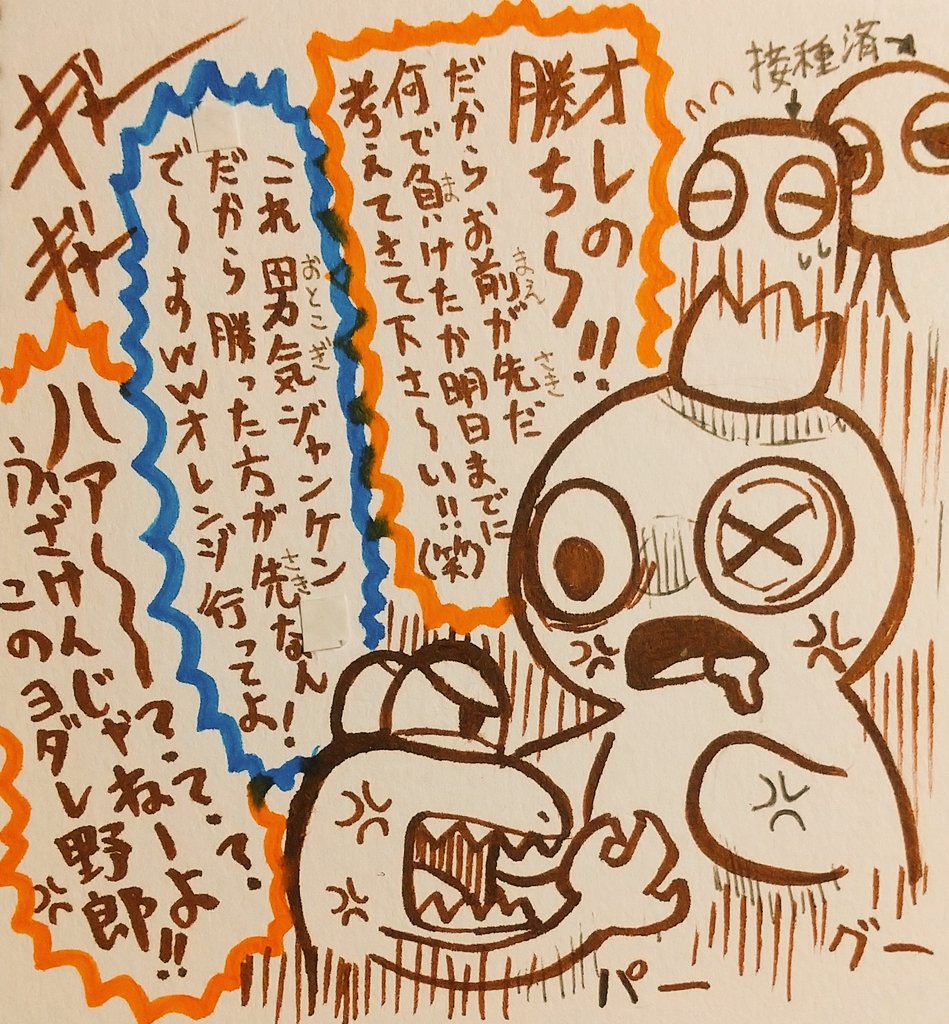 接種済
オレの
勝ち〜!!
だからお前が先だ
まえ
さき
何で負けたか明日までに
ま
考えてきて下さ〜い!!(笑)
これ男気ジャンケン
おとこぎ
だから勝った方が先なん
さき
で〜すwwオレンジ行ってよ!
ギャー
ギャー
ハァ〜〜て・て・て・
ふざけんじゃねーよ!!
このヨダレ野郎
パー
グー